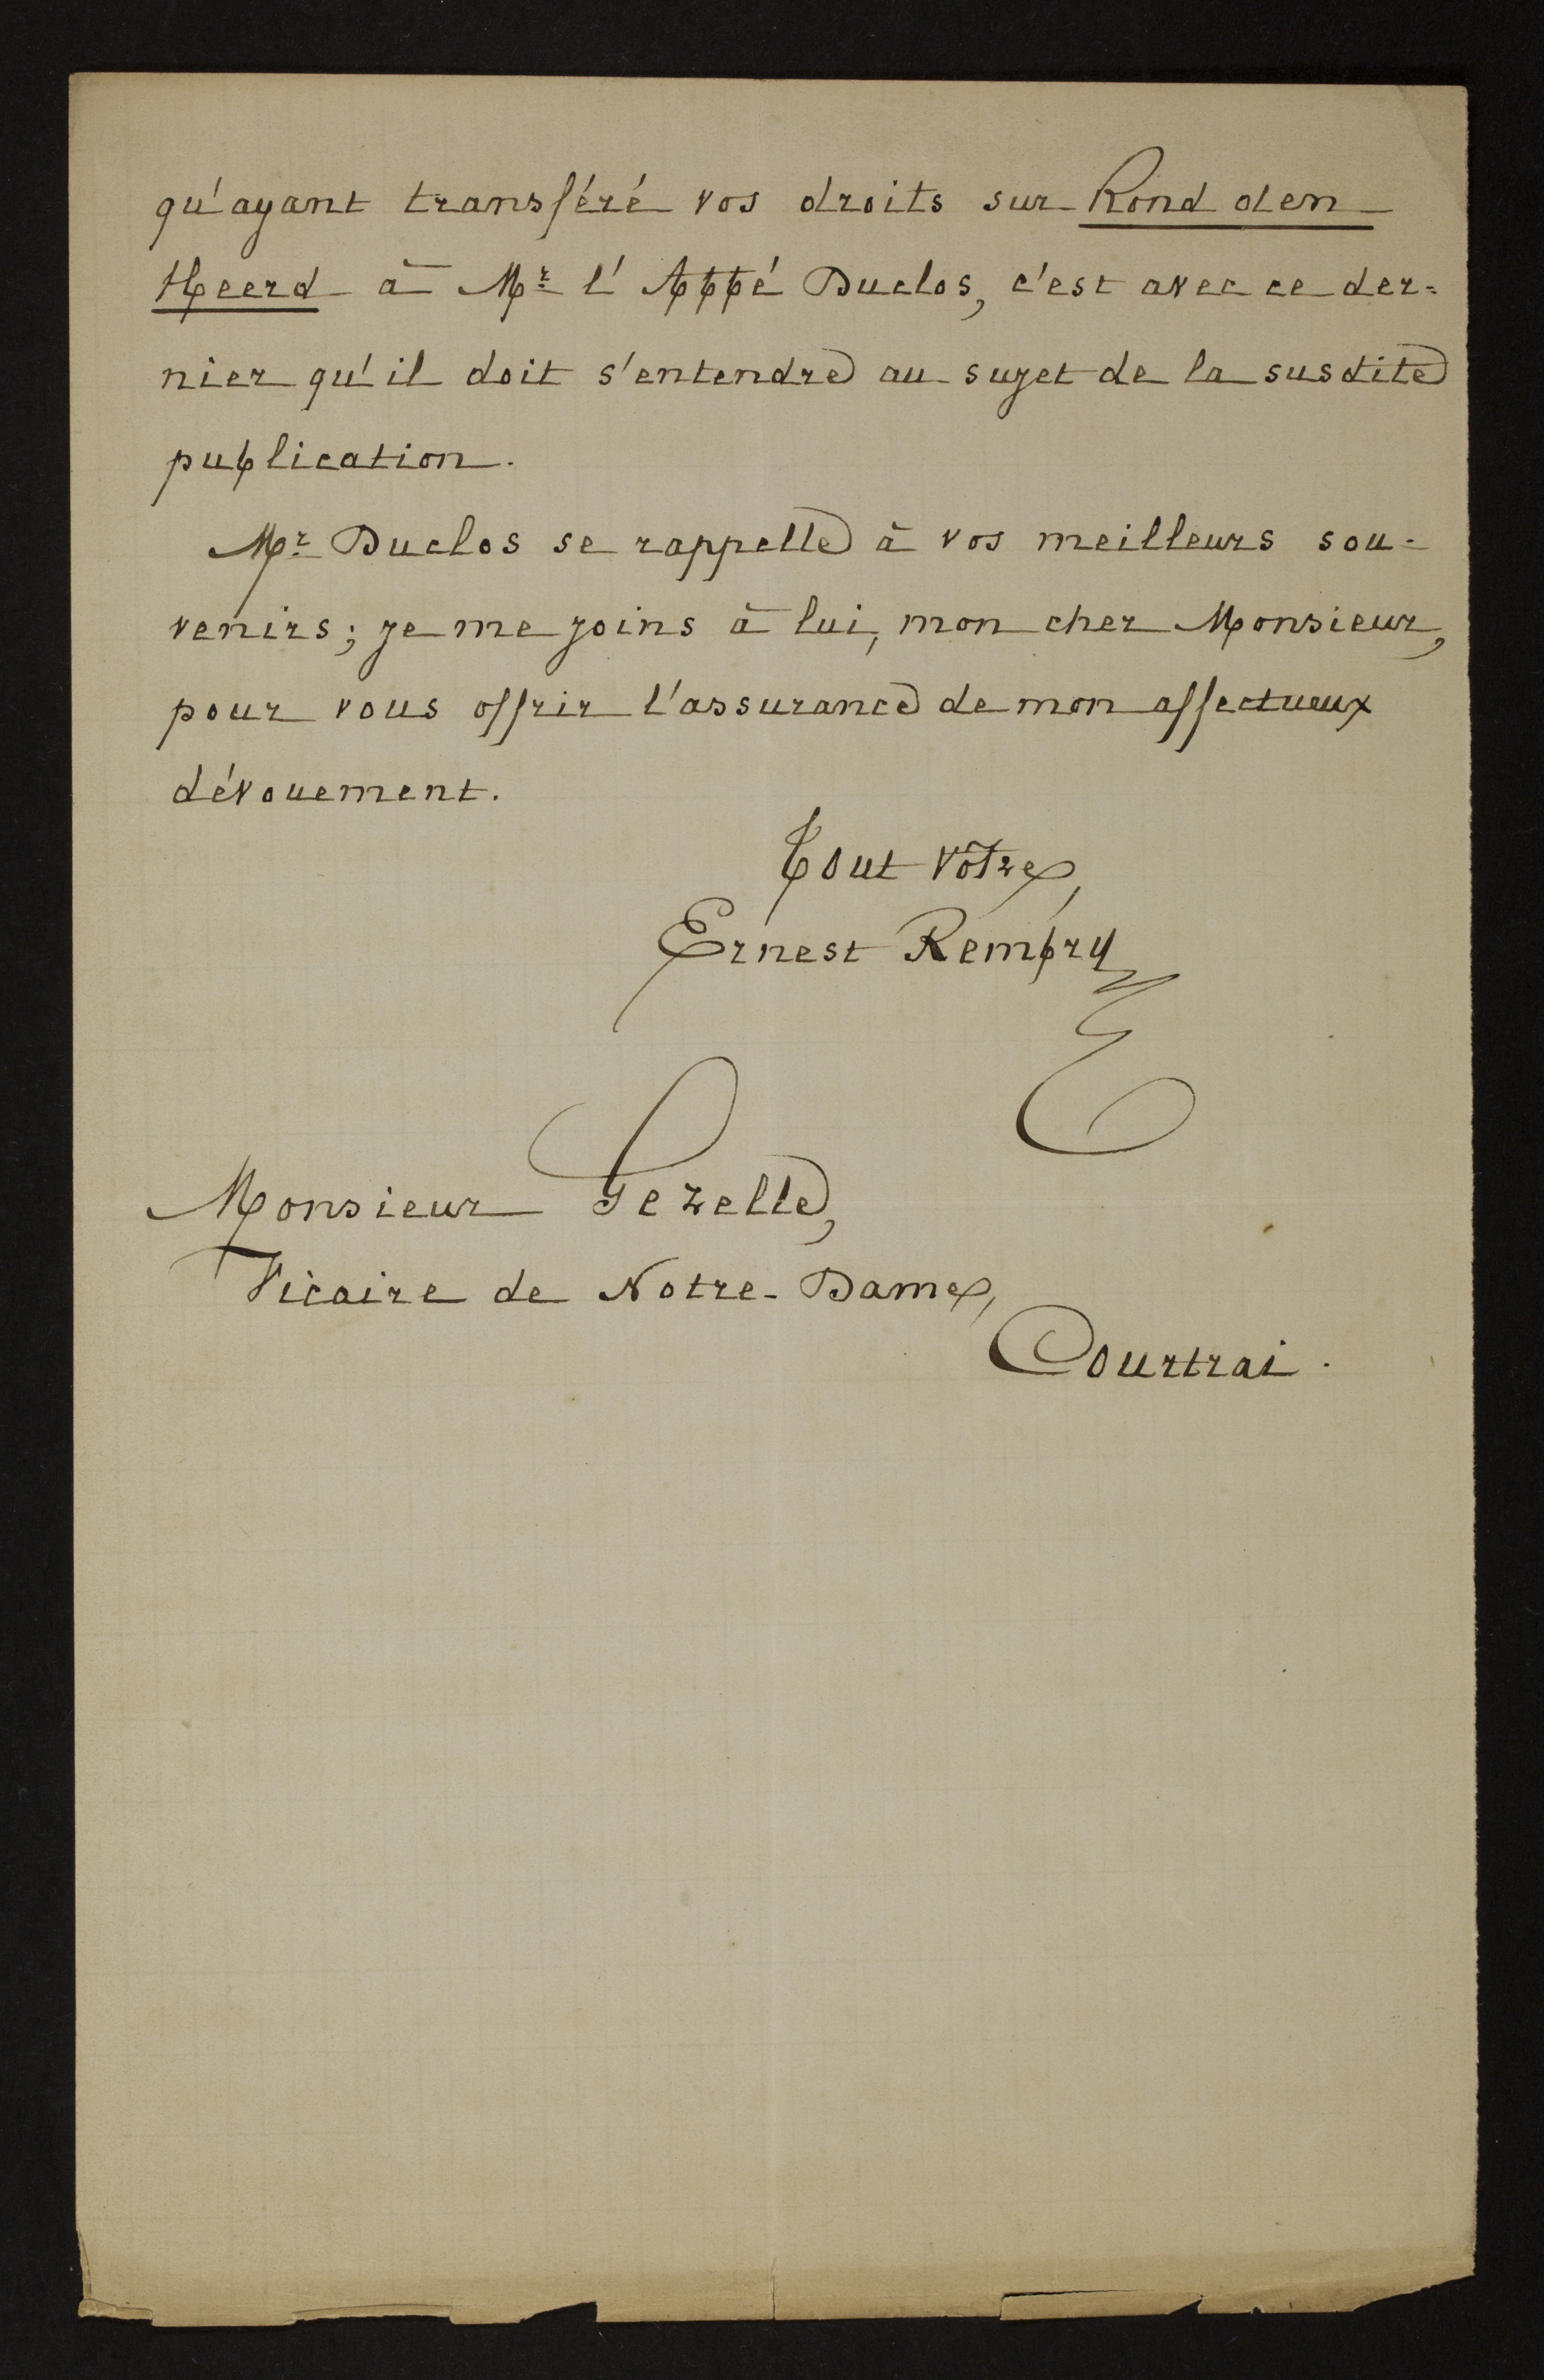 qu'ayant transféré vos droits sur Rond den
Heerd à Mr l'Abbé Duclos, c'est avec ce der=
nier qu'il doit s'entendre au sujet de la susdite
publication.
Mr Duclos se rappelle à vos meilleurs sou-
venirs; je me joins à lui, mon cher Monsieur,
pour vous offrir l'assurance de mon affectueux
dévouement.
Tout vôtre,
Ernest Rembry
Monsieur Gezelle,
Vicaire de Notre-Dame,
Courtrai.